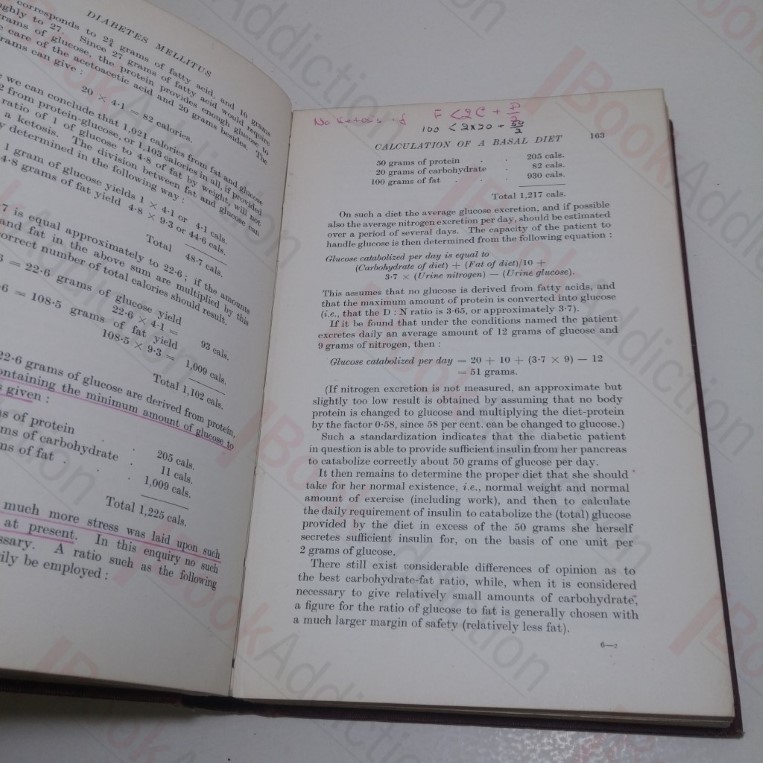 DIABETES MELLITUS
corresponds to 2¾ grams of fatty acid, and 10 grams
roughly to 27. Since 27 grams of fatty acid would require
grams of glucose, the protein provides enough glucose to
care of the acetoacetic acid and 20 grams besides. The
grams can give :
20 × 4·1 = 82 calories.
we can conclude that 1,021 calories from fat and glucose
from protein-glucose, or 1,103 calories in all, if provided
ratio of 1 of glucose to 4·8 of fat by weight, will not
a ketosis. The division between fat and glucose can
determined in the following way :
1 gram of glucose yields 1 × 4·1 or 4·1 cals.
4·8 grams of fat yield 4·8 × 9·3 or 44·6 cals.
Total 48·7 cals.
7 is equal approximately to 22·6 ; if the amounts
and fat in the above sum are multiplied by this
correct number of total calories should result.
= 22·6 grams of glucose yield
22·6 × 4·1 = 93 cals.
·6 = 108·5 grams of fat yield
108·5 × 9·3 = 1,009 cals.
Total 1,102 cals.
22·6 grams of glucose are derived from protein,
containing the minimum amount of glucose to
given :
of protein 205 cals.
of carbohydrate 11 cals.
of fat 1,009 cals.
Total 1,225 cals.
much more stress was laid upon such
at present. In this enquiry no such
A ratio such as the following
be employed :
F < 2C + P/2
100 < 2×20 + 50/2
CALCULATION OF A BASAL DIET 163
50 grams of protein . 205 cals.
20 grams of carbohydrate . 82 cals.
100 grams of fat . 930 cals.
Total 1,217 cals.
On such a diet the average glucose excretion, and if possible
also the average nitrogen excretion per day, should be estimated
over a period of several days. The capacity of the patient to
handle glucose is then determined from the following equation :
Glucose catabolized per day is equal to
(Carbohydrate of diet) + (Fat of diet)/10 +
3·7 × (Urine nitrogen) — (Urine glucose).
This assumes that no glucose is derived from fatty acids, and
that the maximum amount of protein is converted into glucose
(i.e., that the D : N ratio is 3·65, or approximately 3·7).
If it be found that under the conditions named the patient
excretes daily an average amount of 12 grams of glucose and
9 grams of nitrogen, then :
Glucose catabolized per day = 20 + 10 + (3·7 × 9) — 12
= 51 grams.
(If nitrogen excretion is not measured, an approximate but
slightly too low result is obtained by assuming that no body
protein is changed to glucose and multiplying the diet-protein
by the factor 0·58, since 58 per cent. can be changed to glucose.)
Such a standardization indicates that the diabetic patient
in question is able to provide sufficient insulin from her pancreas
to catabolize correctly about 50 grams of glucose per day.
It then remains to determine the proper diet that she should
take for her normal existence, i.e., normal weight and normal
amount of exercise (including work), and then to calculate
the daily requirement of insulin to catabolize the (total) glucose
provided by the diet in excess of the 50 grams she herself
secretes sufficient insulin for, on the basis of one unit per
2 grams of glucose.
There still exist considerable differences of opinion as to
the best carbohydrate-fat ratio, while, when it is considered
necessary to give relatively small amounts of carbohydrate,
a figure for the ratio of glucose to fat is generally chosen with
a much larger margin of safety (relatively less fat).
6—2
BookAddiction